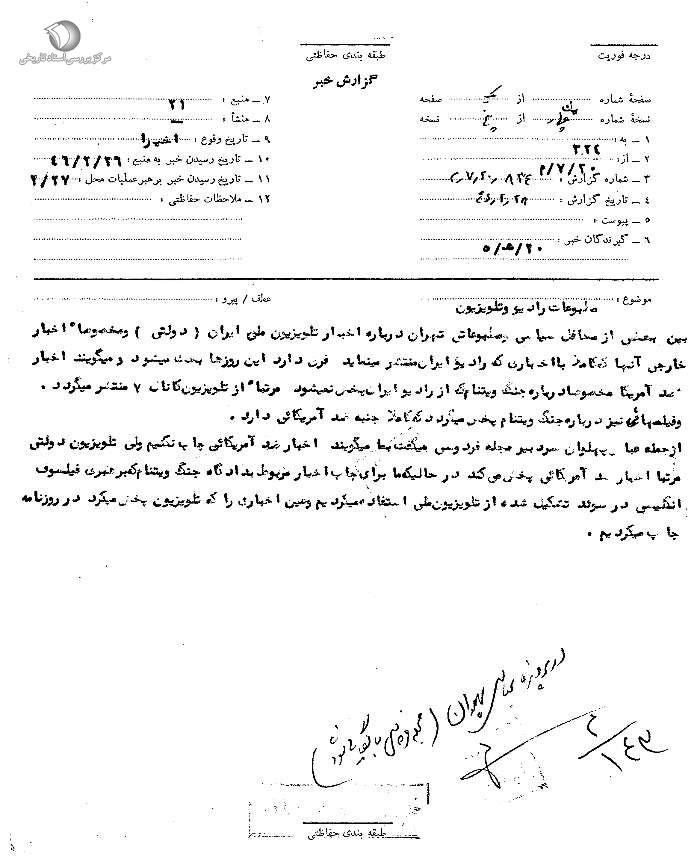 مرکز بررسی اسناد تاریخی
طبقه بندی حفاظتی
درجه فوریت
گزارش خبر
صفحهٔ شماره از یک صفحه
نسخهٔ شماره از پنج نسخه
۱ ـ به :
۲ ـ از: ۳۲۴
۳ ـ شماره گزارش :
۴ ـ تاریخ گزارش :
۵ ـ پیوست :
۶ ـ گیرندگان خبر : ۵/۵/۲۰
۷ ـ منبع : ۲۱
۸ ـ منشأ : ــ
۹ ـ تاریخ وقوع : اخیرا
۱۰ ـ تاریخ رسیدن خبر به منبع : ۴۶/۲/۲۶
۱۱ ـ تاریخ رسیدن خبر برهبرعملیات محل : ۲/۲۷
۱۲ ـ ملاحظات حفاظتی :
موضوع : مطبوعات رادیو وتلویزیون
عطف / پیرو :
بین بعضی از محافل سیاسی ومطبوعاتی تهران درباره اخبار تلویزیون ملی ایران ( دولتی ) ومخصوصا" اخبار
خارجی آنها که کاملا بااخباری که رادیو ایران منتشر مینماید فرق دارد این روزها بحث میشود و میگویند اخبار
ضد آمریکا مخصوصا درباره جنگ ویتنام که از رادیو ایران پخش نمیشود مرتبا" از تلویزیون کانال ۷ منتشر میگردد .
وفیلمهائی نیز درباره جنگ ویتنام پخش میگردد که کاملا جنبه ضد آمریکائی دارد .
ازجمله عباس پهلوان سردبیر مجله فردوسی میگفت بما میگویند اخبار ضد آمریکائی چاپ نکنیم ولی تلویزیون دولتی
مرتبا اخبار ضد آمریکائی پخش می کند در حالیکه ما برای چاپ اخبار مربوط بدادگاه جنگ ویتنام که برهبری فیلسوف
انگلیسی در سوئد تشکیل شده از تلویزیون ملی استفاده میکردیم وعین اخباری را که تلویزیون پخش میکرد در روزنامه
چاپ میکردیم .
در پرونده عباس پهلوان (مجله فردوسی بایگانی شود)
۱۴۳
طبقه بندی حفاظتی